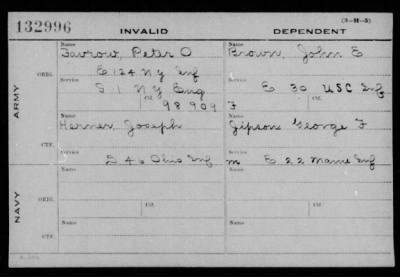 (3-H-5)
132996
INVALID DEPENDENT
Name Name
Favrow, Peter O Brown, John E
ORIG. Service E 124 NY Inf Service E 30 USC Inf
S 1 NY Eng
Ctf. 98909 Ctf. F
ARMY
Name Name
Herner, Joseph Jipson George F
CTF. Service Service
D 46 Ohio Inf m E 22 Maine Inf
Name Name
ORIG. Service Service
NAVY
Ctf. Ctf.
Name Name
CTF. Service Service